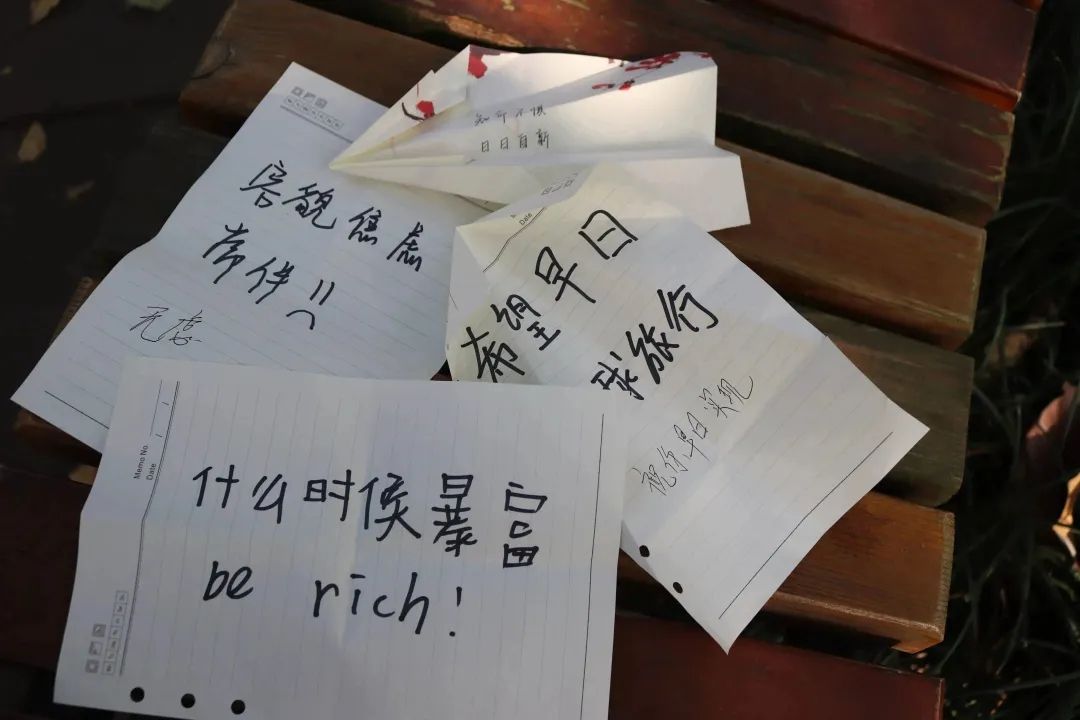 日日自新
容貌焦虑
常伴
无虑
Date
希望早日
球旅行
祝你早日实现
Memo No.
Date
什么时候暴富
be rich!